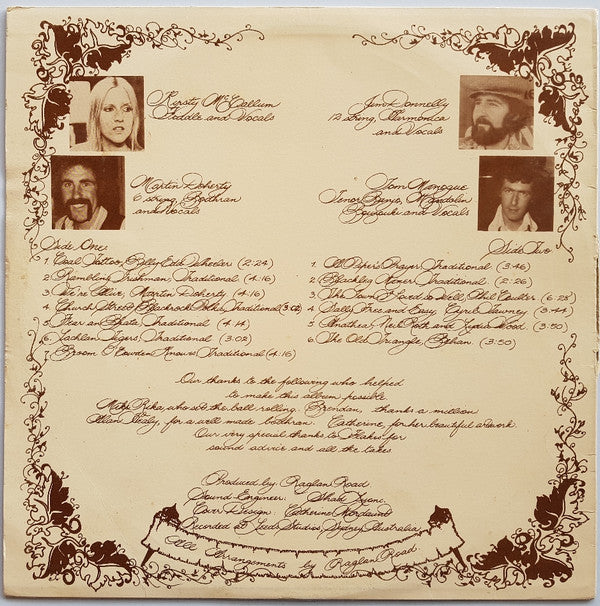 Kirsty McCallum
Fiddle and Vocals
Jim Donnelly
12 string, Harmonica
and Vocals
Martin Doherty
6 string, Bodhran
and Vocals
Tom Manogue
Tenor Banjo, Mandolin
Bouzouki and Vocals
Side One
1. Coal Tattoo, Billy Edd Wheeler (2:24)
2. Rambling Irishman, Traditional (4:16)
3. We're Alive, Martin Doherty (4:16)
4. Church Street & Blackrock Polka, Traditional (3:02)
5. Fear an Bhata, Traditional (4:14)
6. Lachlan Tigers, Traditional (3:02)
7. Broom O'Cowden Knows Traditional (4:16)
Side Two
1. A Piper's Prayer Traditional (3:46)
2. Blackleg Miner Traditional (2:26)
3. The Town I Loved so Well, Phil Coulter (6:25)
4. Sally Free and Easy, Cyril Tawney (3:44)
5. Anathea, Neil Roth and Lydia Wood (3:50)
6. The Old Triangle, Behan. (3:50)
Our thanks to the following who helped
to make this album possible
Mike Rika, who set the ball rolling. Brendan, thanks a million
Alan Healy, for a well made bodhran. Catherine, for her beautiful artwork
Our very special thanks to Flakes for
sound advice and all the takes
Produced by: Raglan Road
Sound Engineer:
Cover & Design: Catherine
Recorded at Leeds Studios, Sydney Australia
All Arrangements by Raglan Road